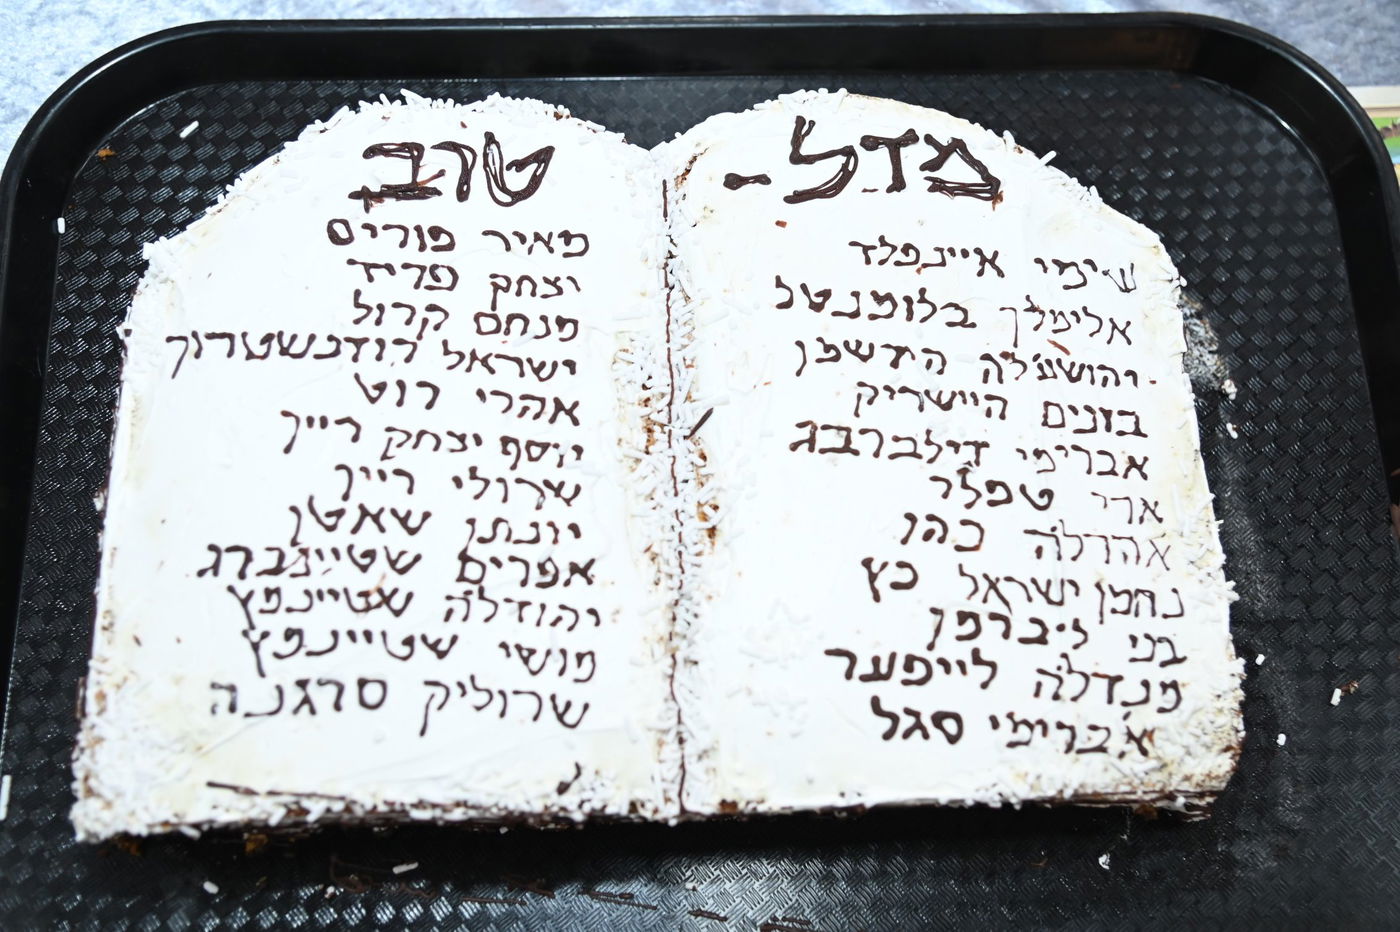 מדל-
שימי איינפלד
אלימלך בלומנטל
יהושע'לה הירשמן
בונים היישריק
אברימי זילברברג
ארי טפלר
אהרלה כהן
נחמן ישראל כץ
בני ליברמן
מנדלה לייפער
אברימי סגל
טוב
מאיר פורים
יצחק פריד
מנחם קרול
ישראל רוזנשטרוך
אהרי רוט
יוסף יצחק רייך
שרולי רייך
יונתן שאטן
אפרים שטיינברג
יהודלה שטיינמץ
מושי שטיינמץ
שרוליק סרגנה